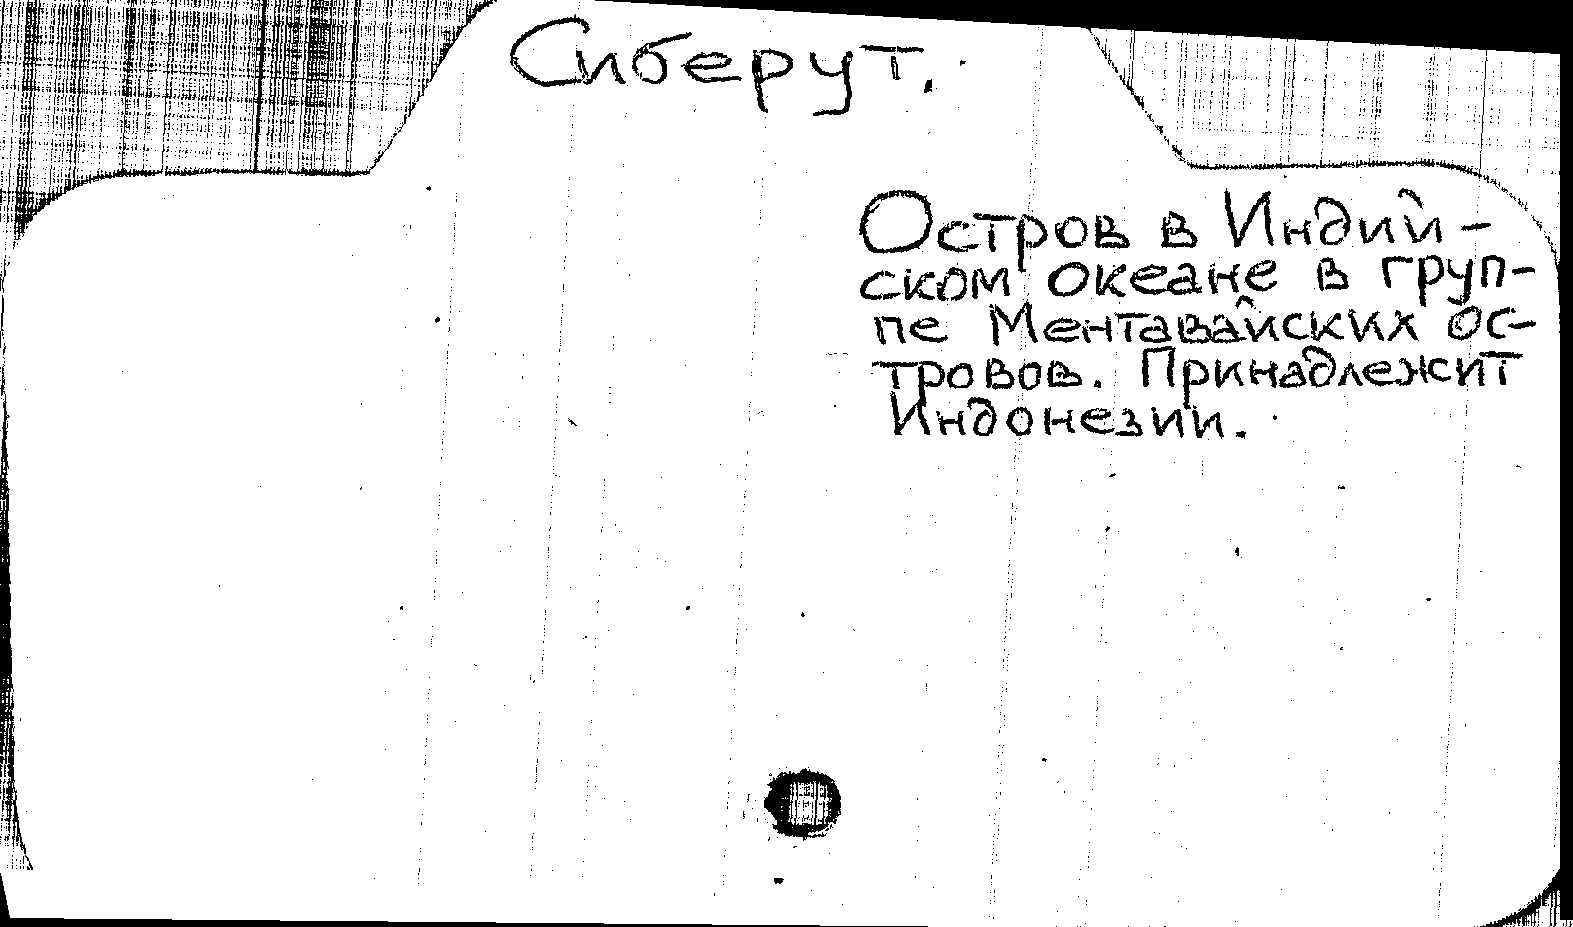 Сиберут.
Остров в Индий-
ском океане в груп-
пе Ментавайских ос-
тровов. Принадлежит
Индонезии.